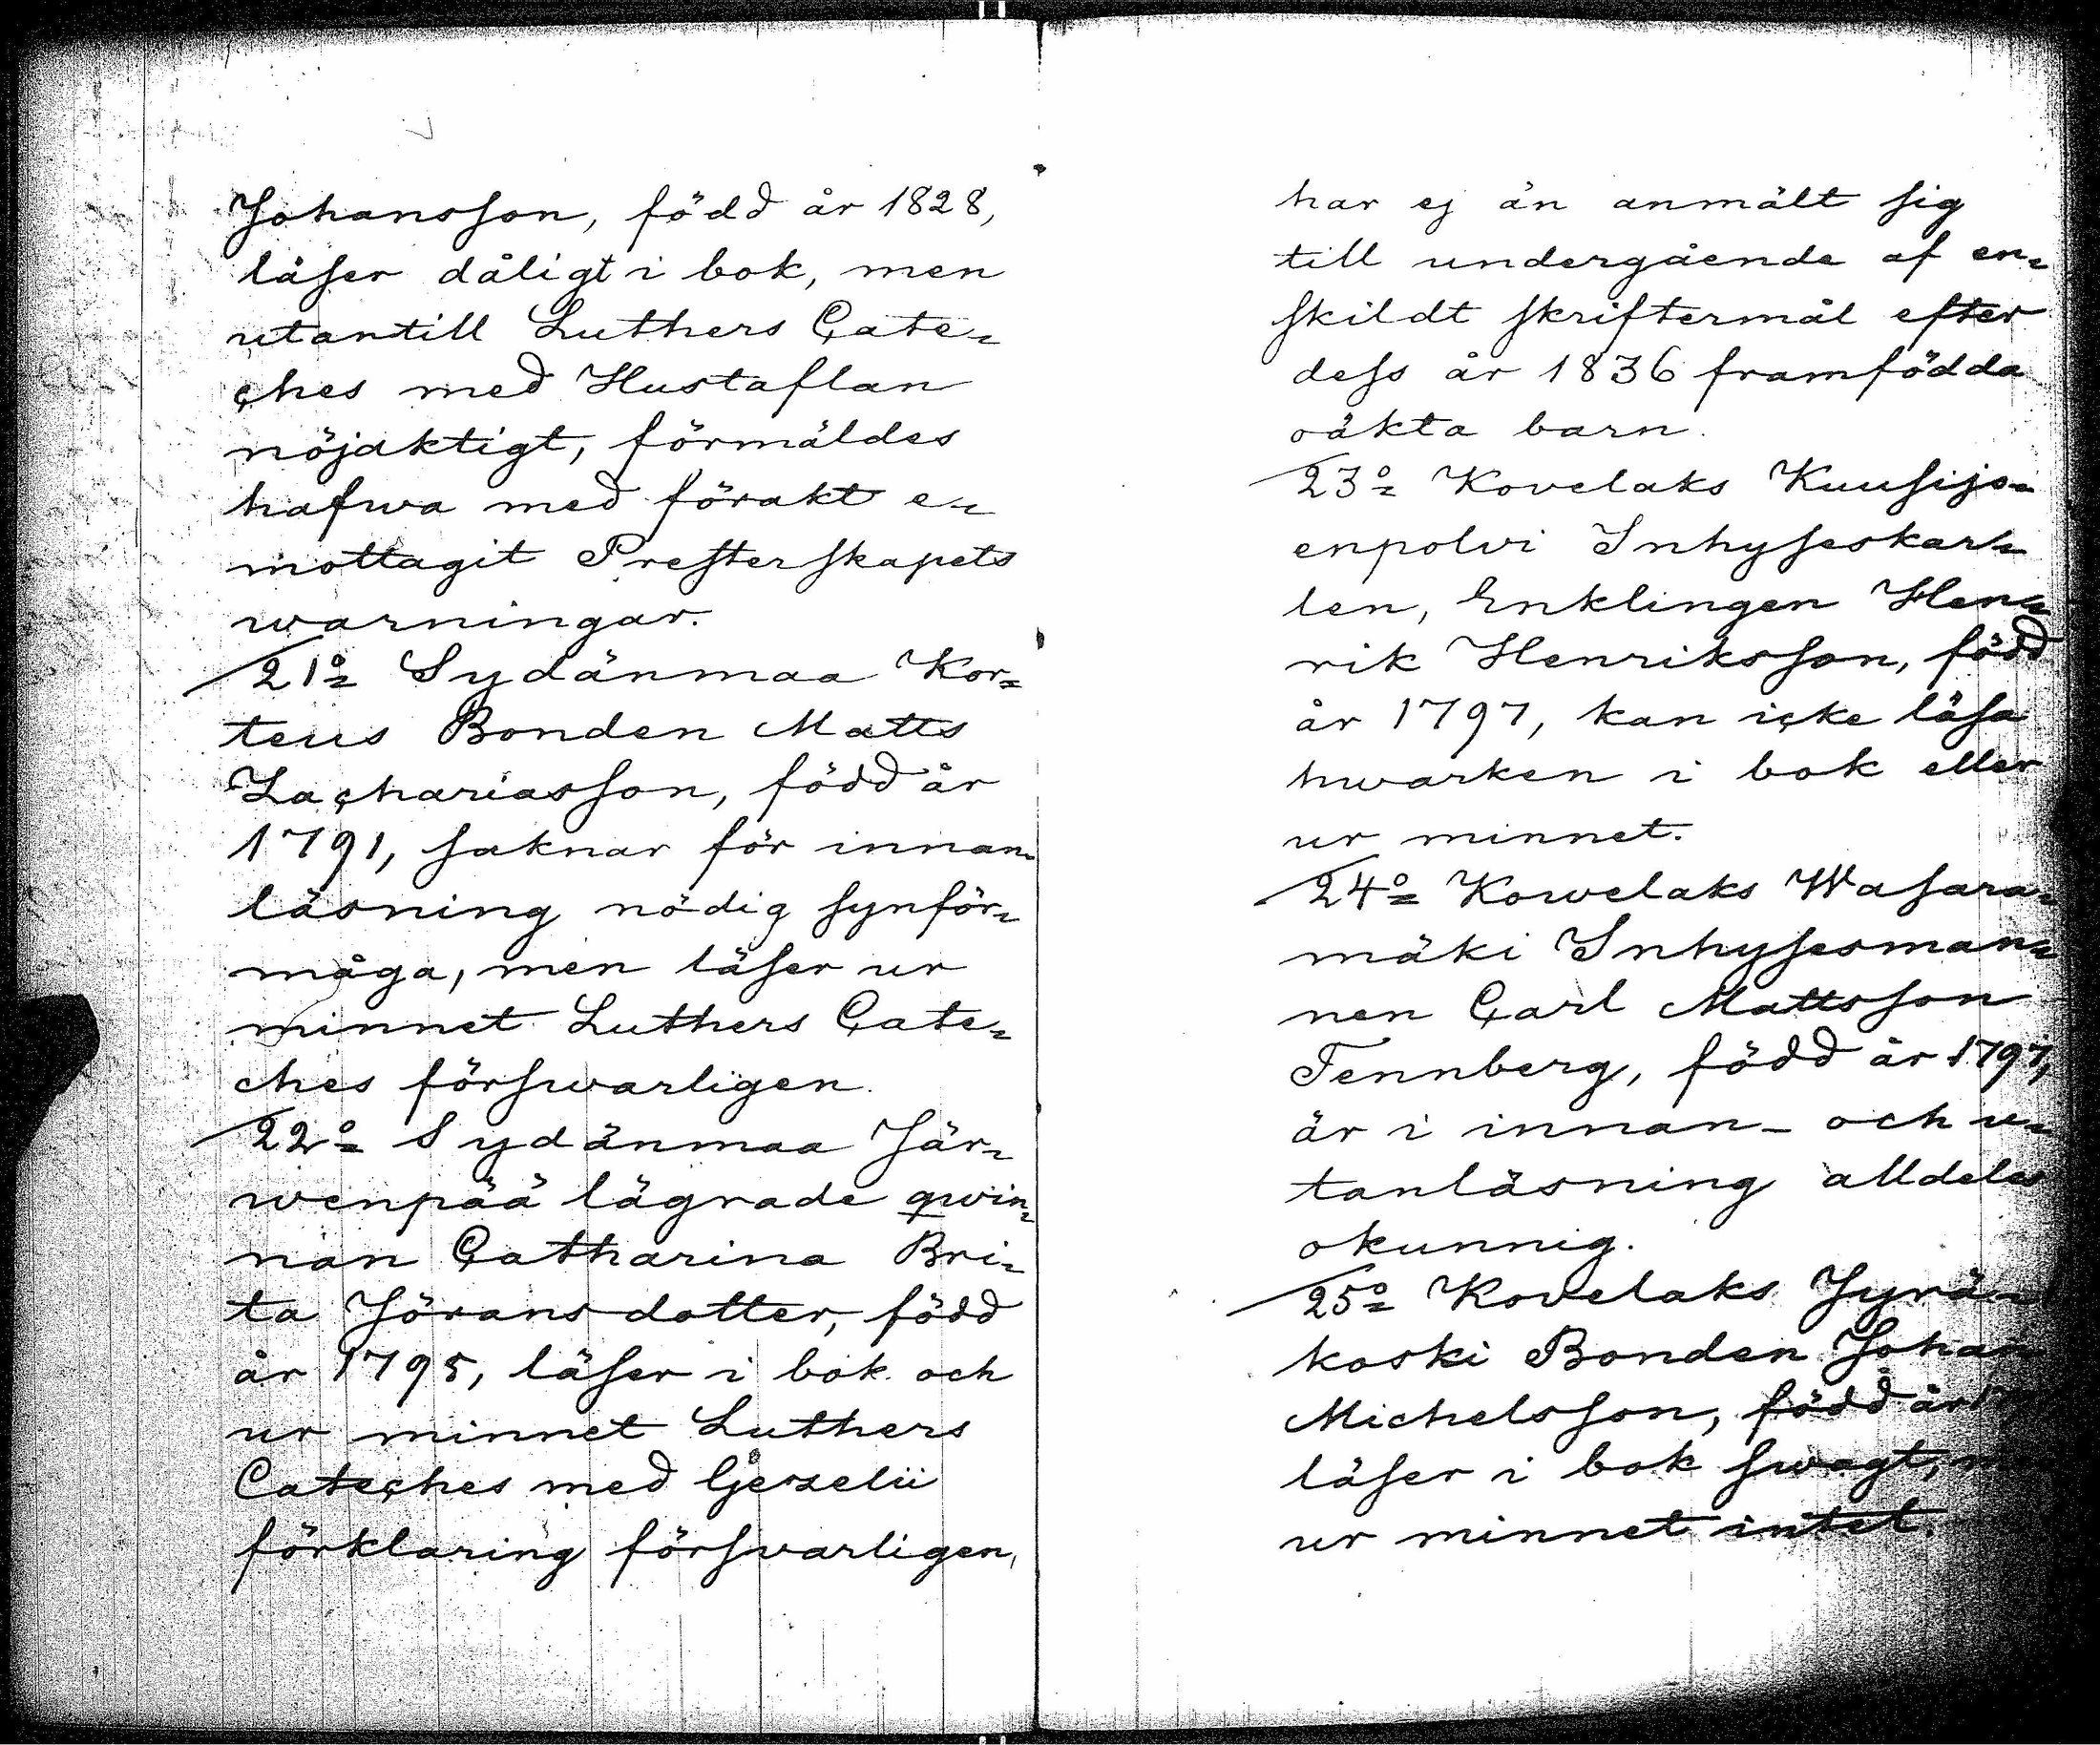 Johansson, född år 1828,
läser dåligt i bok, men
utantill Luthers Cate=
ches med Hustaflan
nöjaktigt, förmäldes
hafwa med förakt e=
mottagit Presterskapets
warningar.
21o= Sydänmaa Kor=
teus Bonden Matts
Zachariasson, född år
1791, saknar för innan=
läsning nödig synför=
måga, men läser ur
minnet Luthers Cate=
ches förswarligen.
22o= Sydänmaa Jär=
wenpää lägrade qwin=
nan Catharina Bri=
ta Jöransdotter, född
år 1795, läser i bok och
ur minnet Luthers
Cateches med Gezelii
förklaring försvarligen,
har ej än anmält sig
till undergående af en=
skildt skriftermål efter
dess år 1836 framfödda
oäkta barn.
23o= Kovelaks Kuusijo=
enpolvi Inhyseskar=
len, Enklingen Hen=
rik Henriksson, född
år 1797, kan icke läsa
hwarken i bok eller
ur minnet.
24o= Kowelaks Wasara=
mäki Inhysesman=
nen Carl Mattsson
Tennberg, född år 1797,
är i innan- och u=
tanläsning alldeles
okunnig.
25o= Kovelaks Jyrä=
koski Bonden Johan
Michelsson, född år
läser i bok swagt,
ur minnet intet.